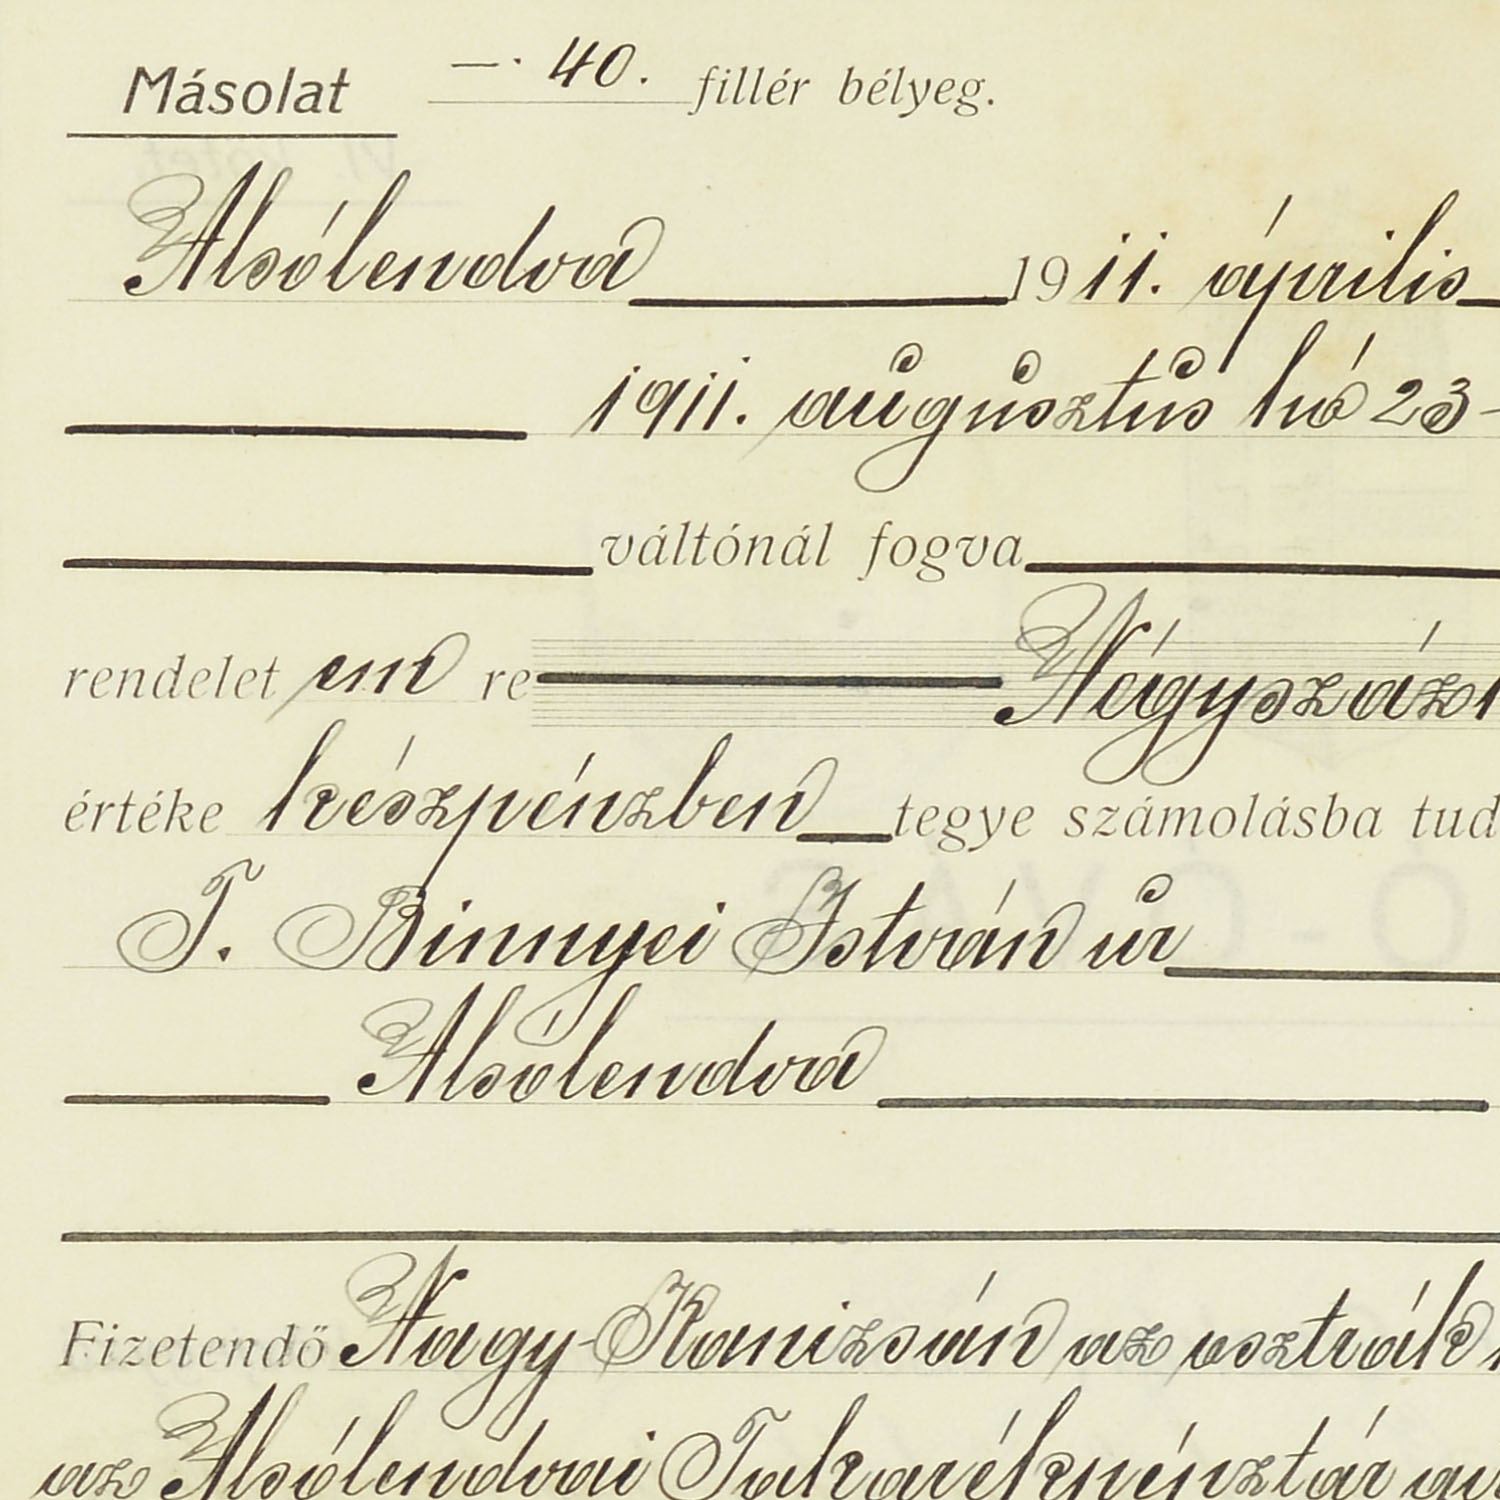 Másolat —. 40. fillér bélyeg.
Alsólendva 1911. április
1911. augusztus hó 23-
váltónál fogva
rendelet em re Négyszáz
értéke készpénzben tegye számolásba tud
T. Binnyei István úr
Alsólendva
Fizetendő Nagy-Kanizsán az osztrák
az Alsólendvai Takarékpénztár